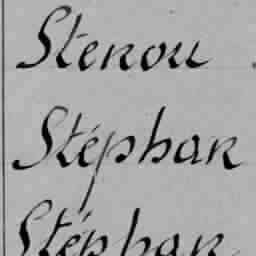 Stenou
Stéphan
Stéphan